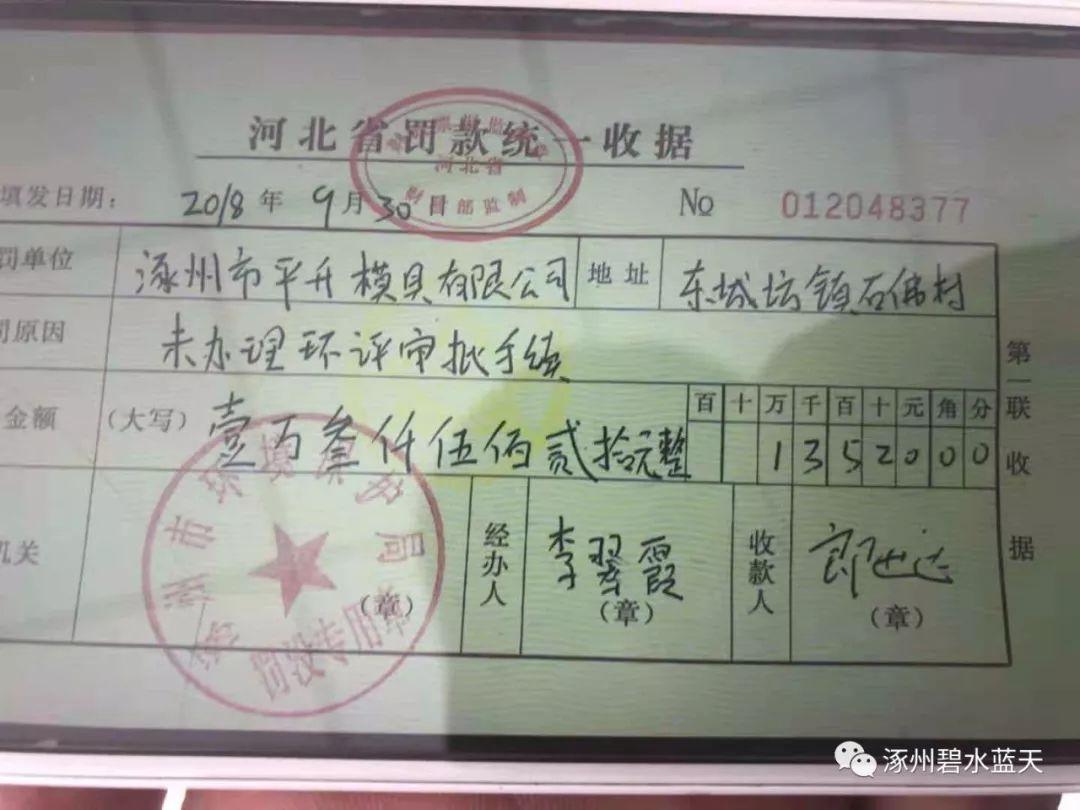 河北省罚款统一收据
河北省
财政部监制
填发日期： 2018年 9月 30日 № 012048377
罚单位 涿州市平升模具有限公司 地址 东城坊镇石佛村
原因 未办理环评审批手续
金额 （大写） 壹万叁仟伍佰贰拾元整 百十万千百十元角分
1352000
机关 （章） 经办人 李翠霞 （章） 收款人 郎 （章）
涿州市环境保护局
罚没专用章
第一联 收据
涿州碧水蓝天